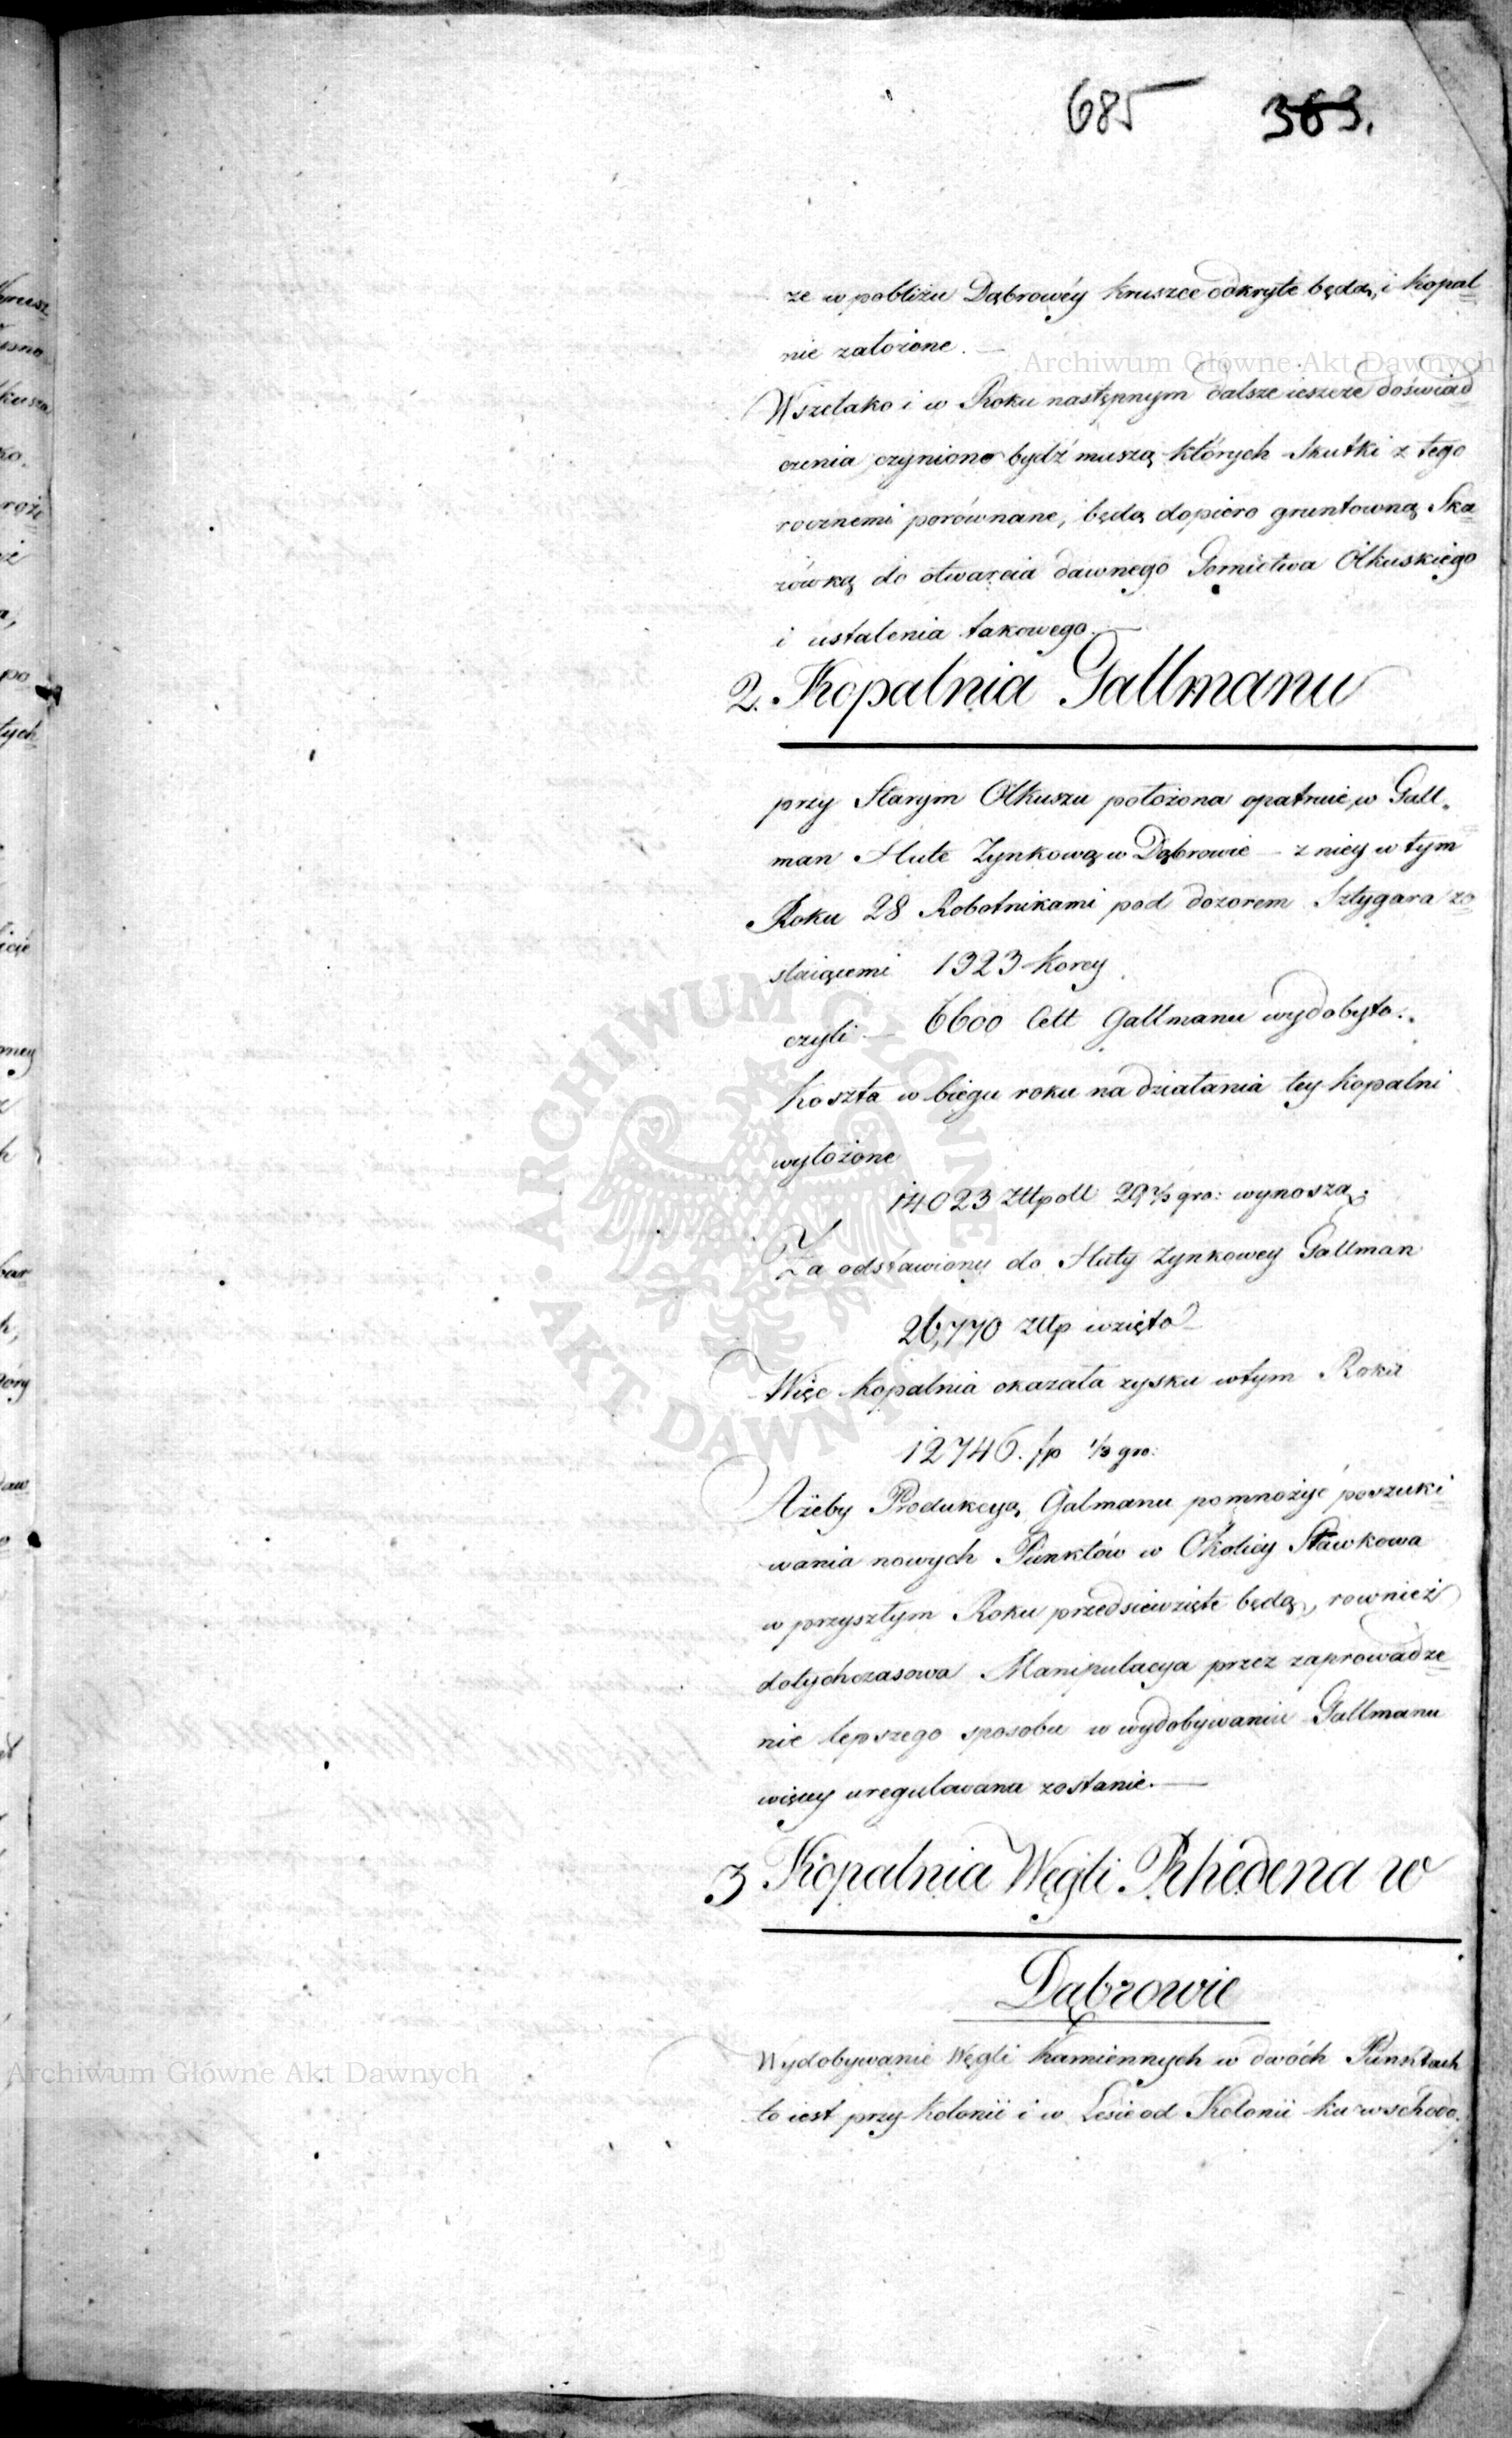 685 383.
że w pobliżu Dąbrowéy kruszce odkryte będą, i kopal
nie założone. —
Wszelako i w Roku następnym dalsze ieszcze doświad
czenia czynione bydź muszą których skutki z tego
rocznemi porównane, będą dopiero gruntowną Ska
zówką do otwarcia dawnego Gornictwa Olkuskiego
i ustalenia takowego. —
2. Kopalnia Gallmanu
przy Starym Olkuszu położona opatruie w Gall„
man Hute Zynkową w Dąbrowie — z niey w tym
Roku 28 Robotnikami pod dozorem Sztygara zo
staiącemi 1323 Korcy
czyli — 6600 Cett Gallmanu wydobyto.
Koszta w biegu roku na działania tey kopalni
wyłożone
14023 Zttpoll 29⅔ gro: wynoszą.
Za odstawiony do Huty Zynkowey Gallman
26,770 Zttp wzięto —
Więc kopalnia okazała zysku w tym Roku
12746. fp ⅓ gro:
Ażeby Produkcyą Galmanu pomnożyć poszuki
wania nowych Punktów w Okolicy Sławkowa
w przyszłym Roku przedsiewzięte będą, rownież
dotychczasowa Manipulacya przez zaprowadze
nie lepszego sposobu w wydobywaniu Gallmanu
więcey uregulowana zostanie. —
3 Kopalnia Węgli Rhedena w
Dąbrowie
Wydobywanie Węgli Kamiennych w dwóch Punktach
to iest przy Kolonii i w Lesie od Kolonii ku wschodo.
Archiwum Główne Akt Dawnych
Archiwum Główne Akt Dawnych
ARCHIWUM GŁÓWNE AKT DAWNYCH